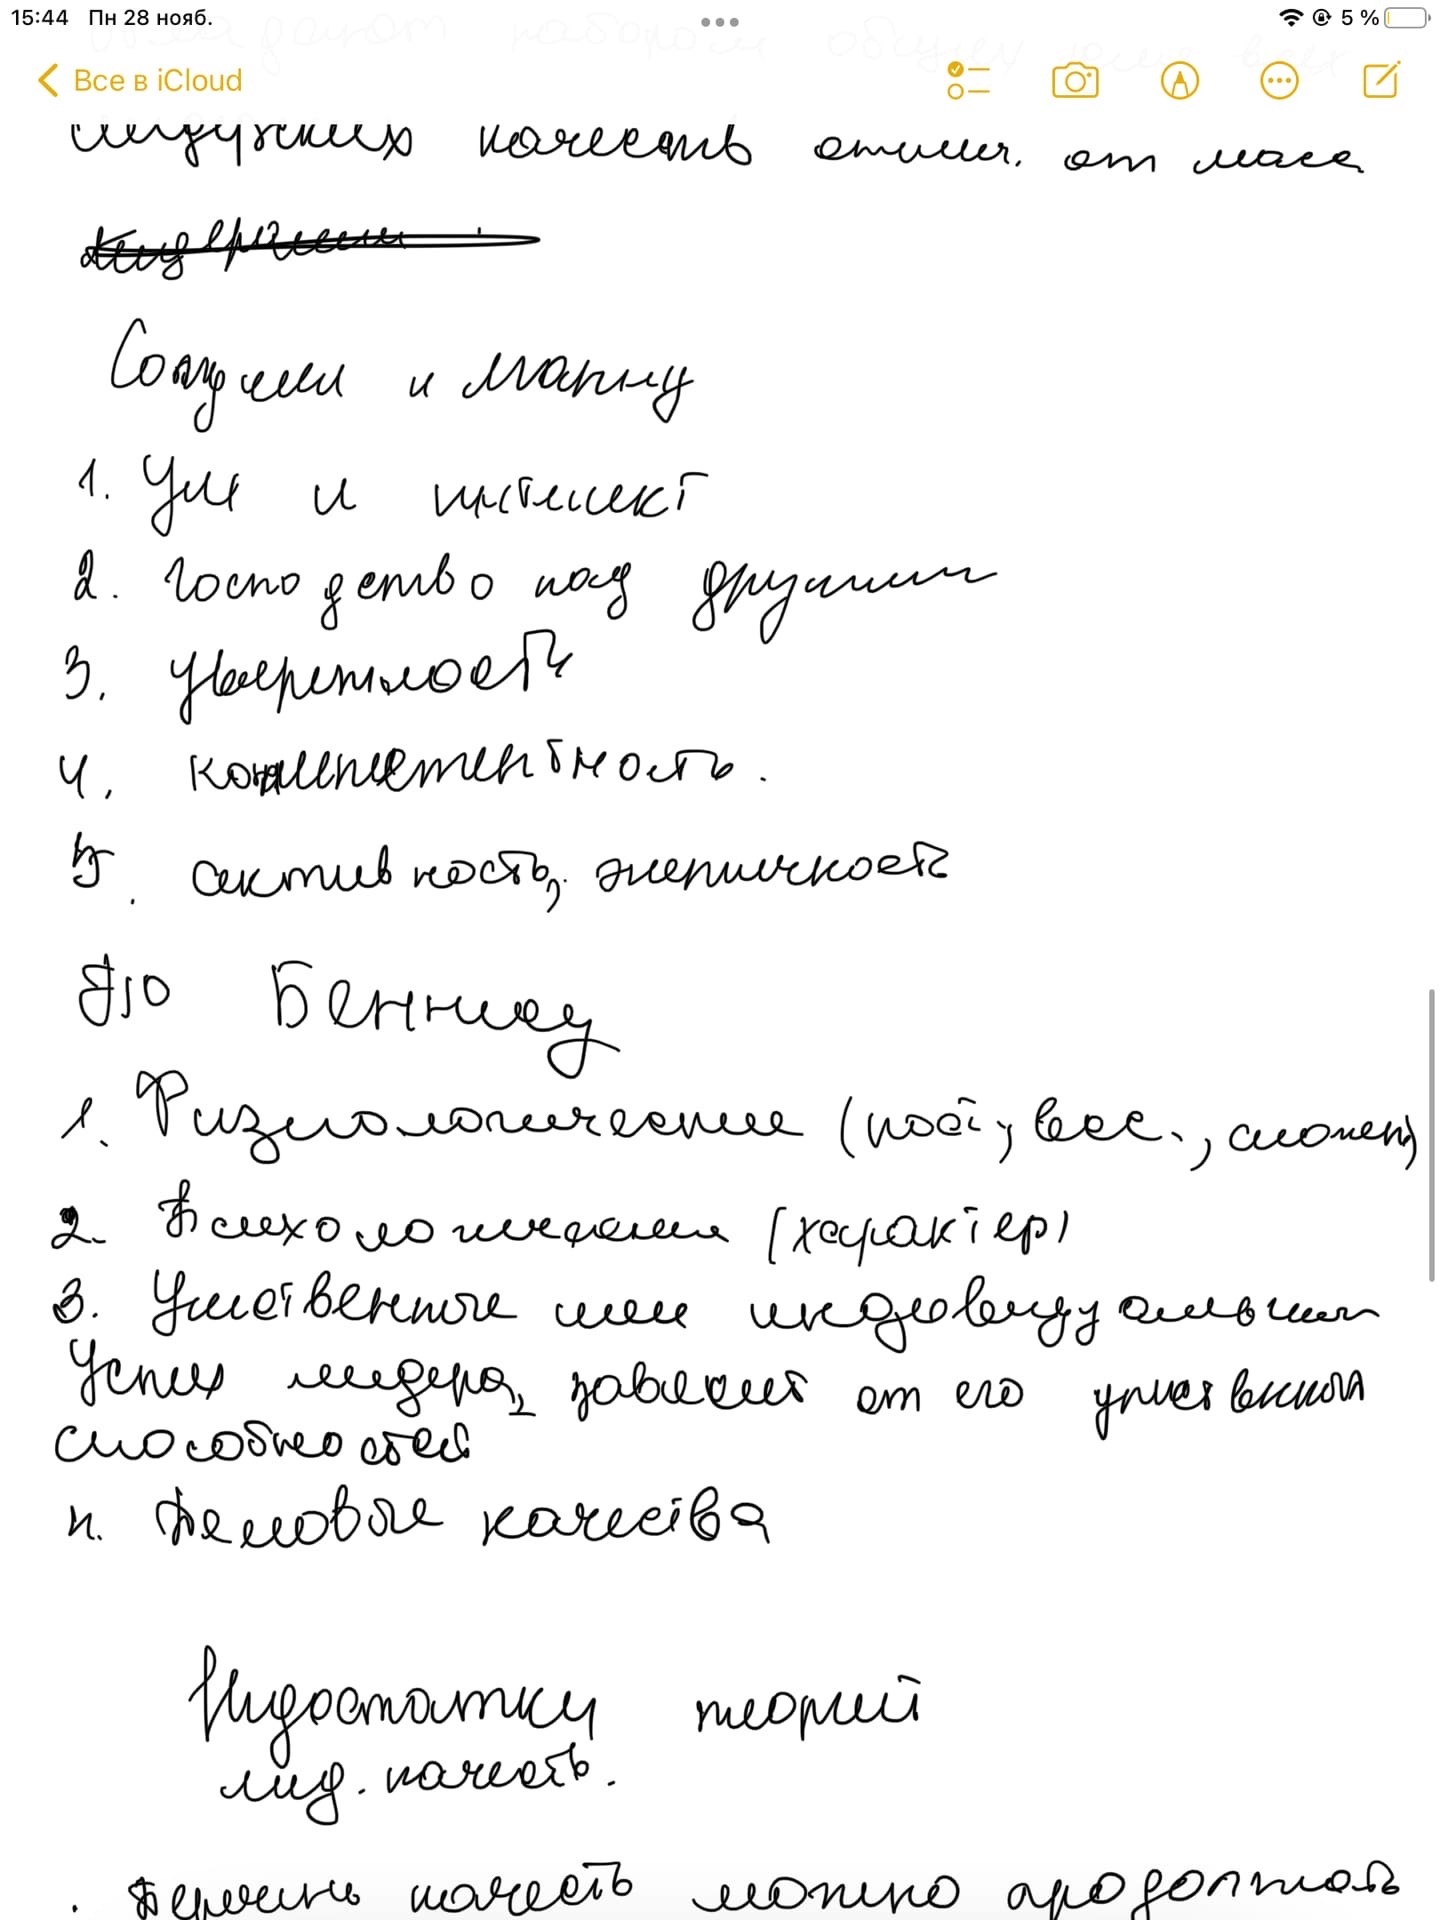 15:44 Пн 28 нояб.
5 %
Все в iCloud
качеств отлич. от масс
и Манну
1. Ум и интеллект
2. Господство над другими
3. Уверенность
4. компетентность.
5. активность, энергичность
По Беннису
1. Физиологические (рост, вес.,
2. Психологические (характер)
3. Умственные или индивидуальные
Успех лидера зависит от его умственных
способностей
4. Деловые качества
Недостатки теорий
лид. качеств.
. Перечень качеств можно продолжать